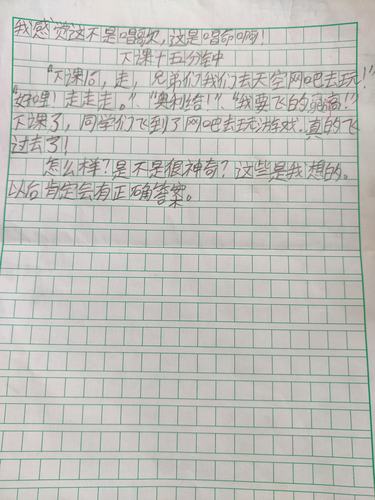 我感觉这不是唱歌，这是唱命啊！
下课十五分钟中
“下课后，走，兄弟们我们去天空网吧去玩！”
“好哩！走走走。”“奥利给！”“我要飞的更高！”
下课了，同学们飞到了网吧去玩游戏.真的飞
过去了！
怎么样？是不是很神奇？这些是我想的。
以后肯定会有正确答案。